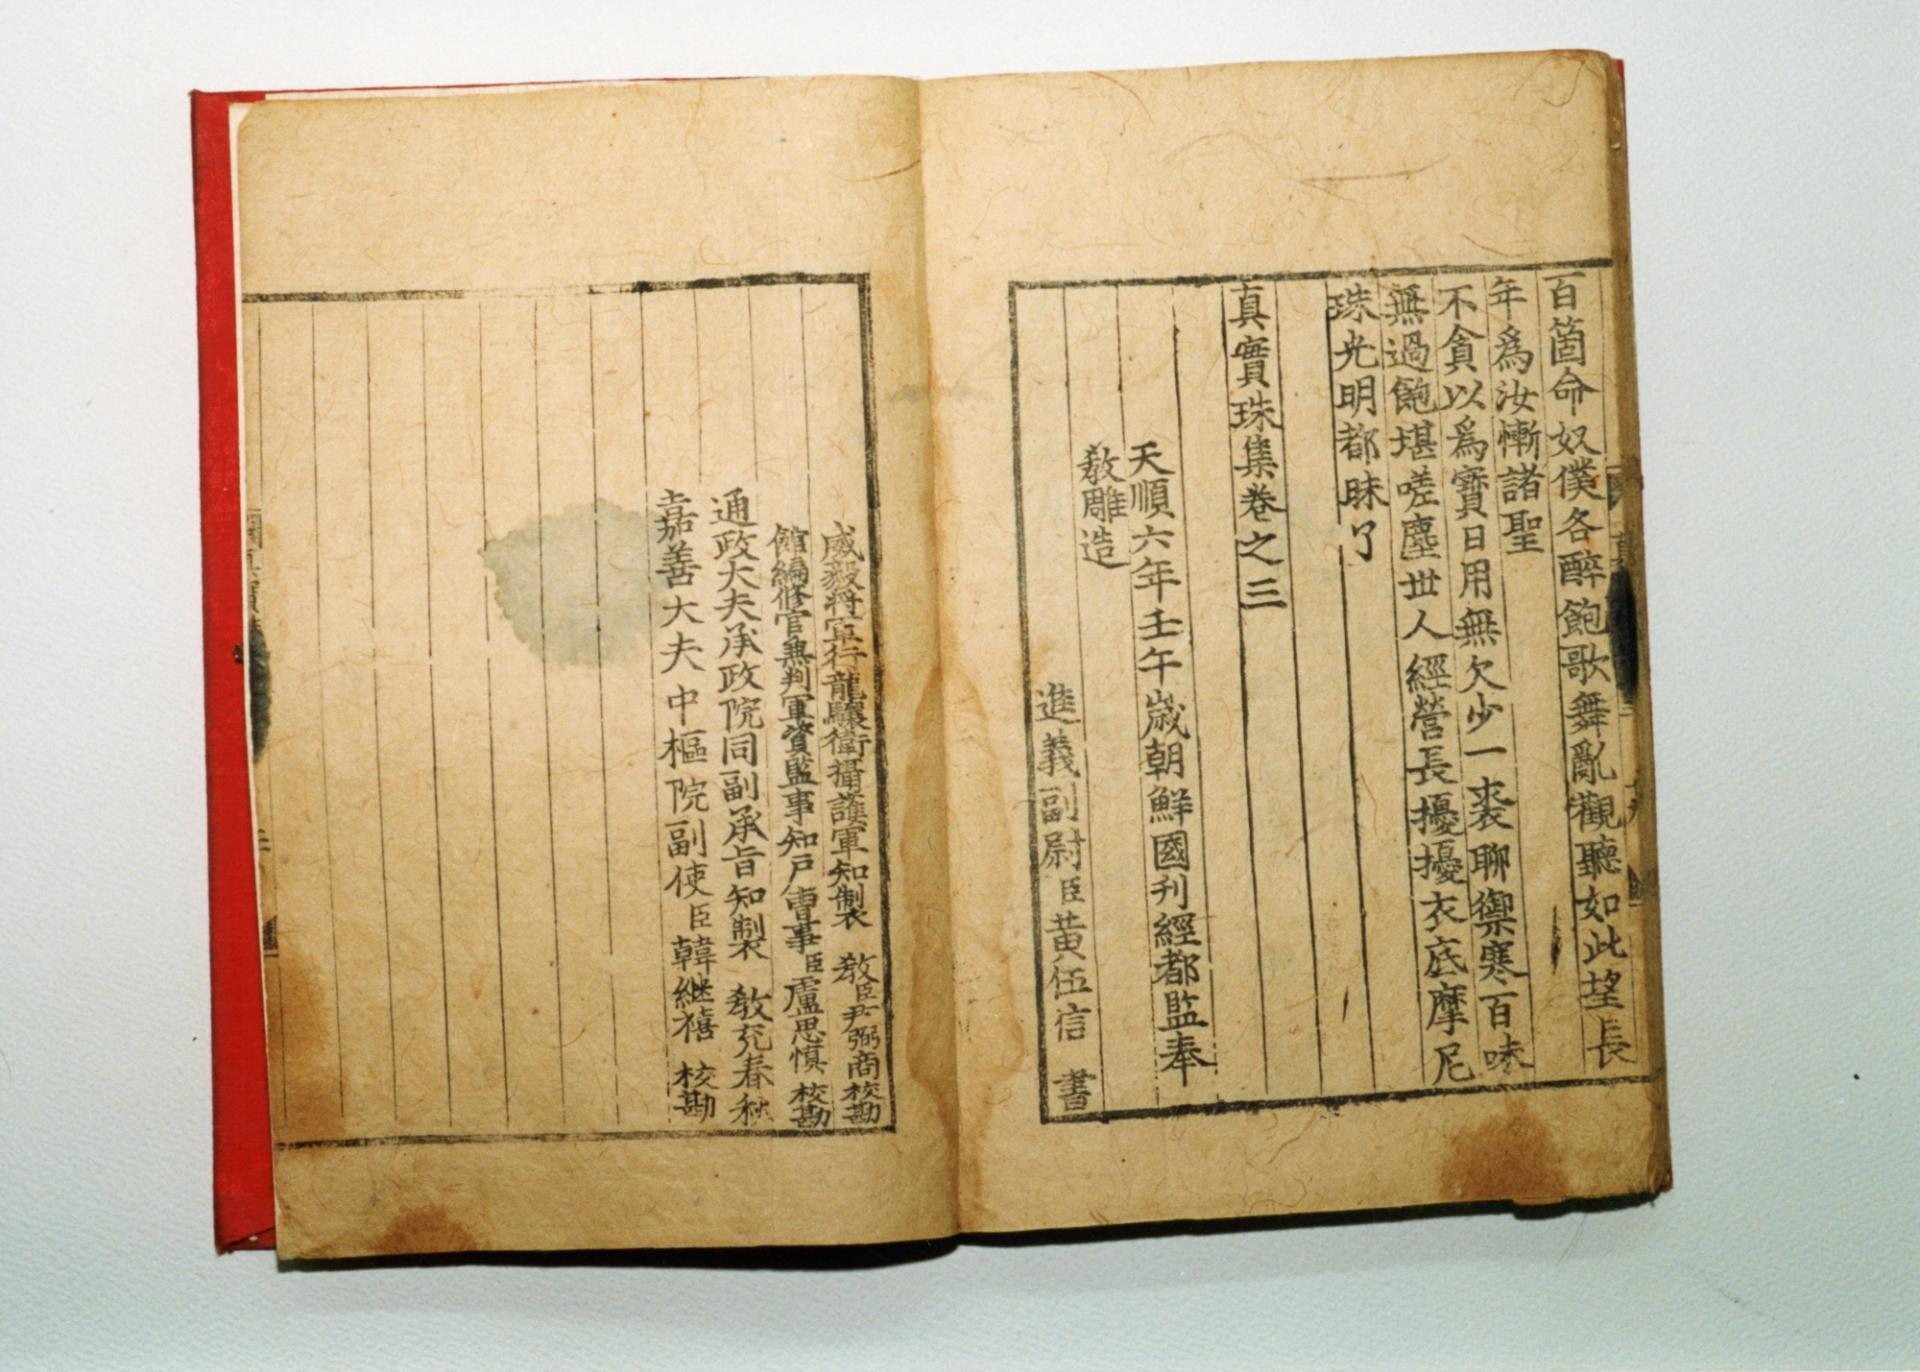 百箇命奴僕各醉飽歌舞亂觀聽如此望長
年爲汝慚諸聖
不貪以爲寶日用無欠少一裘聊禦寒百味
無過飽堪嗟塵世人經營長擾擾衣底摩尼
珠光明都昧了
真實珠集卷之三
天順六年壬午歲朝鮮國刊經都監奉
敎雕造
進義副尉臣黃伍信 書
威毅將軍行龍驤衛攝護軍知製 敎臣尹弼商校勘
館編修官兼判軍資監事知戶曹事臣盧思愼 校勘
通政大夫承政院同副承旨知製 敎充春秋
嘉善大夫中樞院副使臣韓継禧 校勘